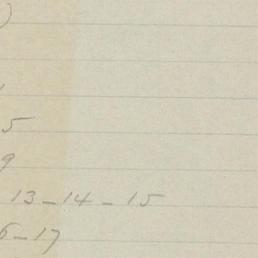 )
5
9
13-14-15
6-17